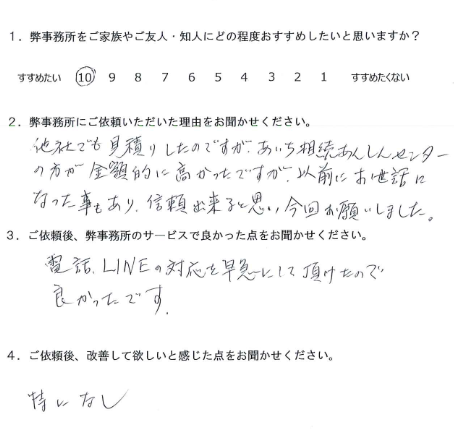 １．弊事務所をご家族やご友人・知人にどの程度おすすめしたいと思いますか？
すすめたい 10 9 8 7 6 5 4 3 2 1 すすめたくない
２．弊事務所にご依頼いただいた理由をお聞かせください。
他社でも見積りしたのですが、あいち相続あんしんセンター
の方が金額的に高かったですが、以前にお世話に
なった事もあり、信頼出来ると思い、今回お願いしました。
３．ご依頼後、弊事務所のサービスで良かった点をお聞かせください。
電話、LINEの対応を早急にして頂けたので
良かったです。
４．ご依頼後、改善して欲しいと感じた点をお聞かせください。
特になし